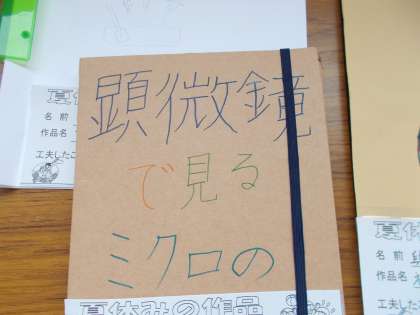 顕微鏡
で見る
ミクロの
夏休みの作品
名前
作品名
工夫したこ
夏休
名前
作品名